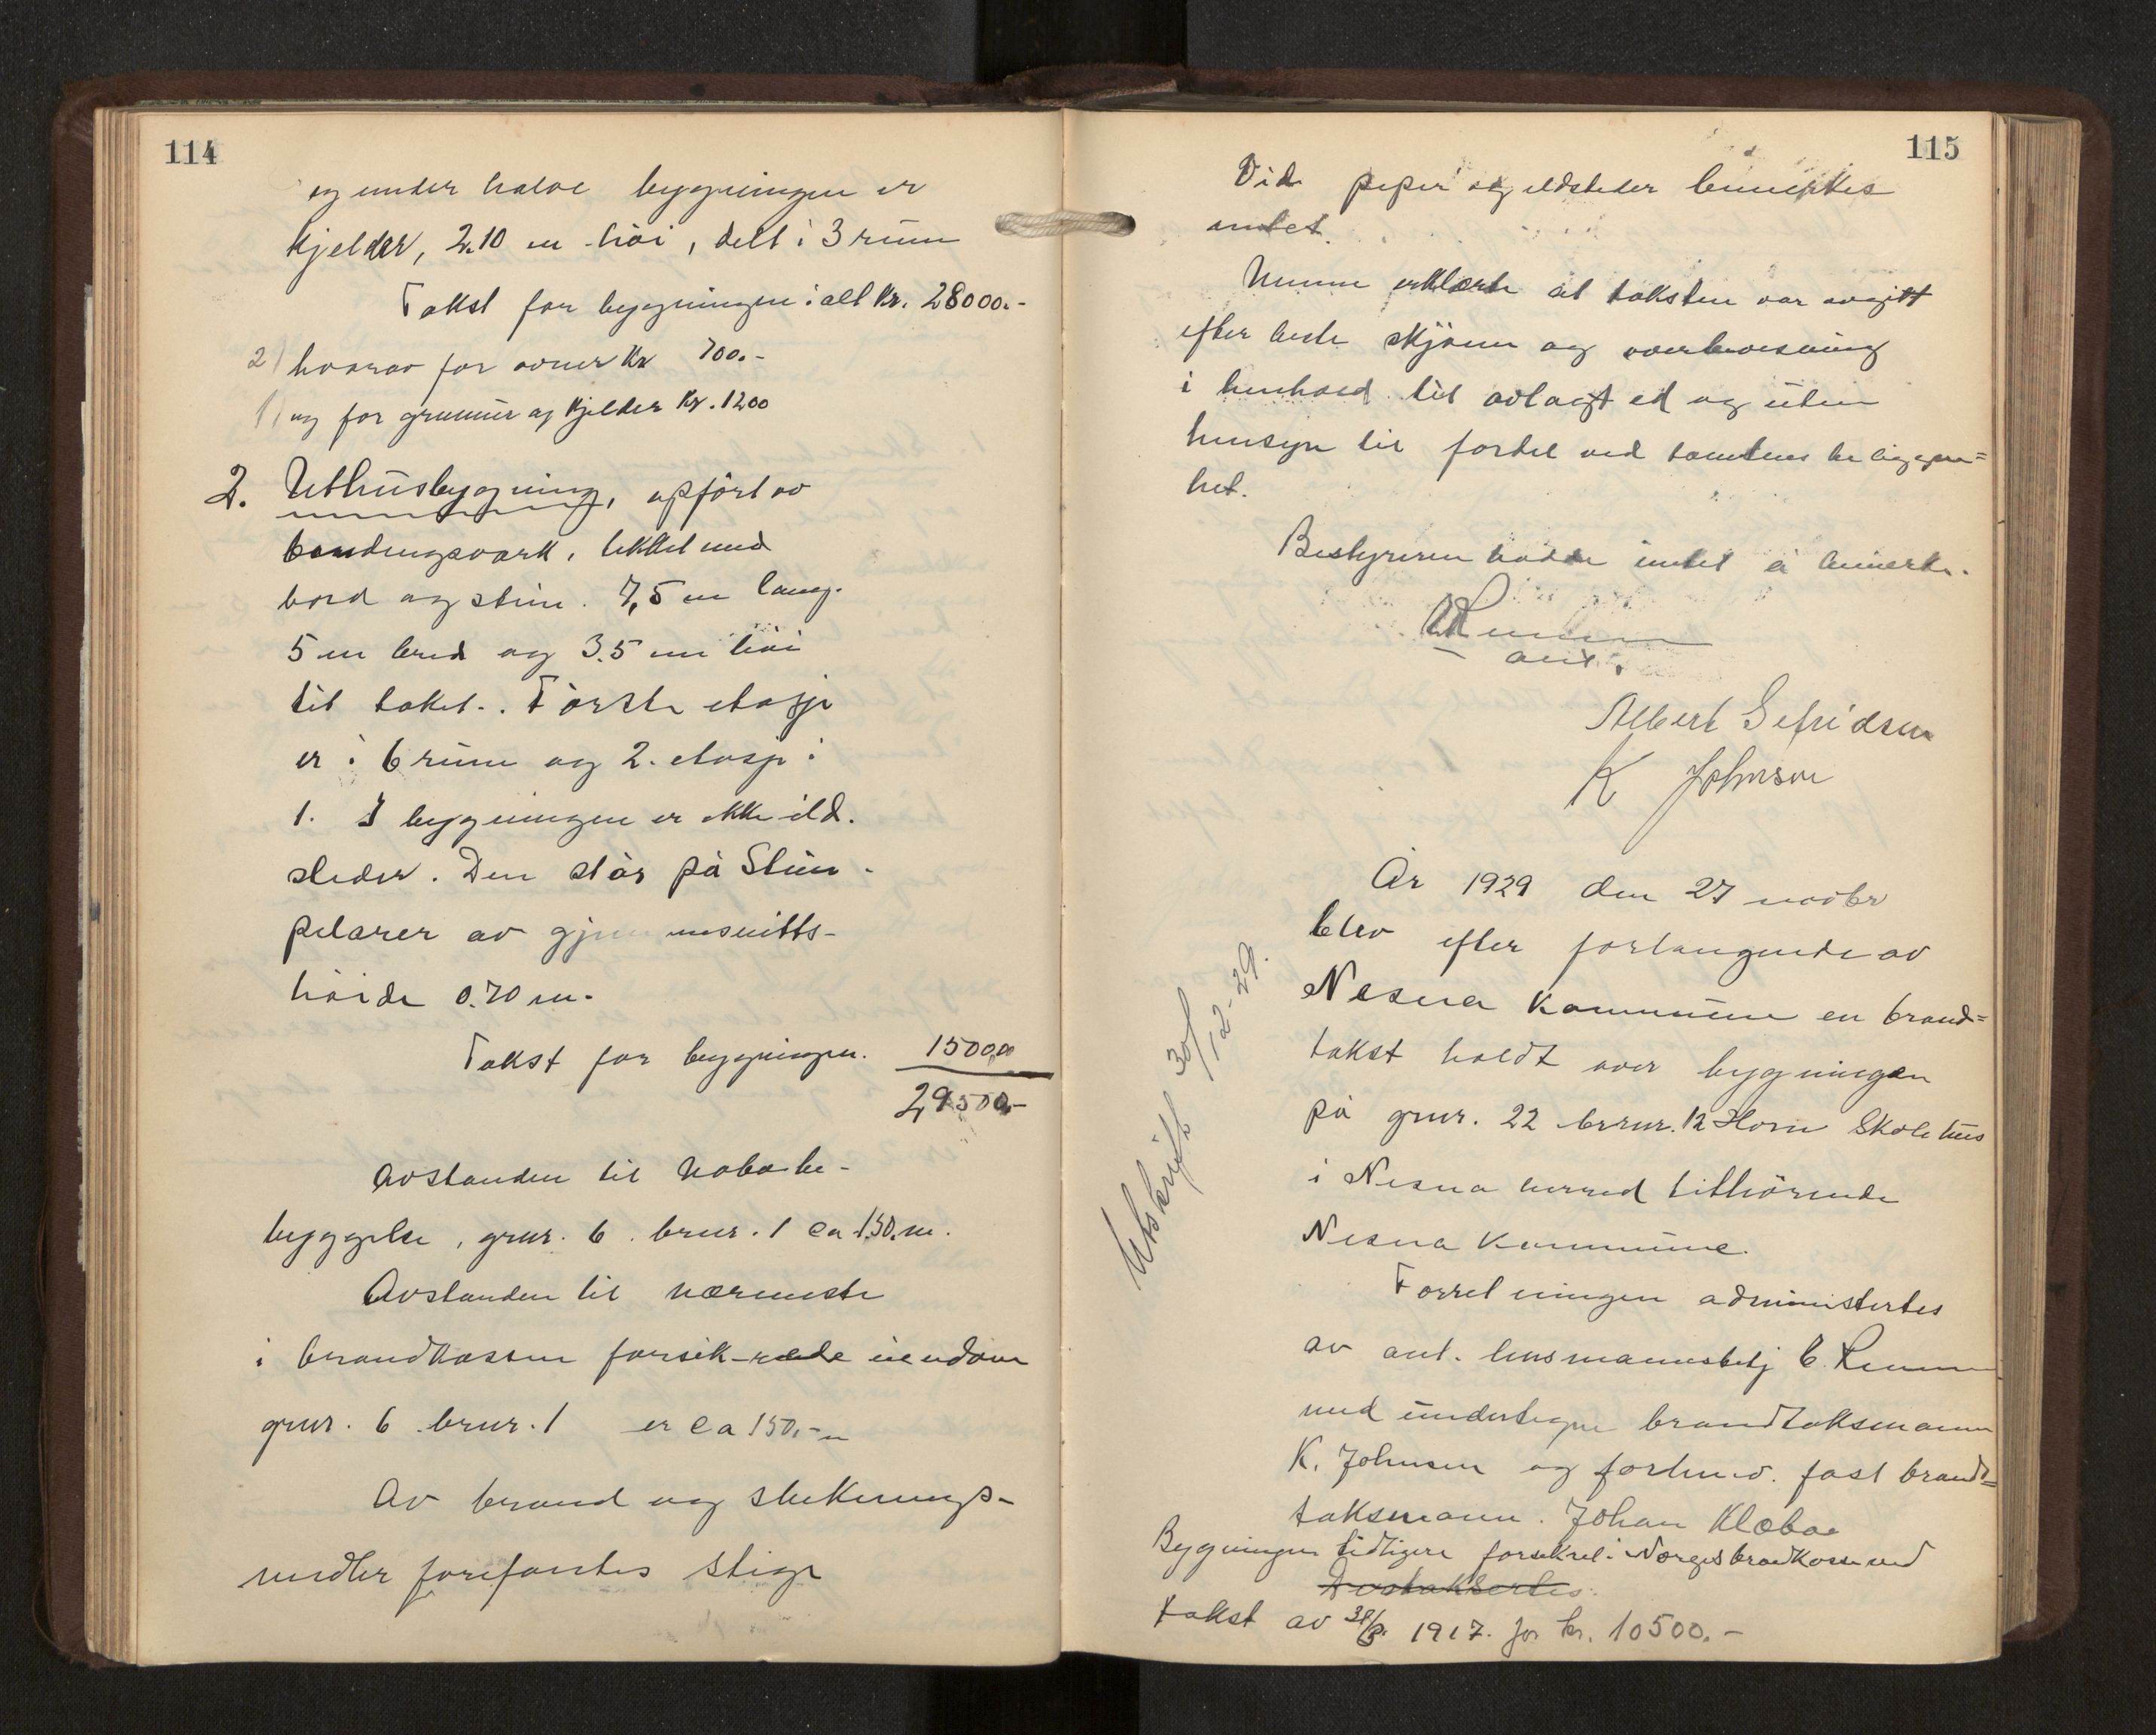 114
og under halve bygningen er
kjelder, 2.10 m höi, delt i 3 rum
Takst for bygningen i alt kr. 28000.-
2) hvorav for ovner Kr 700.-
1) og for grunmur og kjelder Kr. 1200
2. Uthusbygning, opfört av
bindingsverk, tekket med
bord og stein. 7,5 m lang.
5 m bred og 3.5 m höi
til taket. Förste etasje
er i 6 rum og 2. etasje i
1. I bygningen er ikke ild-
steder. Den står på Stein-
pilarer av gjennemsnitts-
höide 0.70 m.
Takst for bygningen. 1500,00
29500,-
Avstanden til nabobe-
byggelse, gnr. 6. brnr. 1 ca 150. m.
Avstanden til nærmeste
i brandkassen forsik-rede eiendom
gnr. 6 brnr. 1 er ca 150,- m
Av brand og slukknings-
midler forefantes stige
115
Ved piper og ildsteder bemerktes
intet.
Mennene erklærte at taksten var avgitt
efter beste skjönn og overbevisning
i henhold til avlagt ed og uten
hensyn til fordel ved tomtens beliggen=
het.
Bestyreren hadde intet å bemerke.
aut.
Albert Sefridsen
K Johnsen
År 1929 den 27 novbr
blev efter forlangende av
Nesna Kommune en brand=
takst holdt over bygningen
på gnr. 22 brnr. 12 Horn Skolehus
i Nesna herred tilhörende
Nesna Kommune.
Utskrift 30/12-29.
Forretningen administertes
av aut. lensmannsbetj
med undertegne branntaksmann
K. Johnsen og forhenv. fast brand=
taksmann. Johan Klæboe
Bygningen tidligere forsikret i Norges brandkasse ved
Avtaksertes.
takst av 1917. for kr. 10500.-